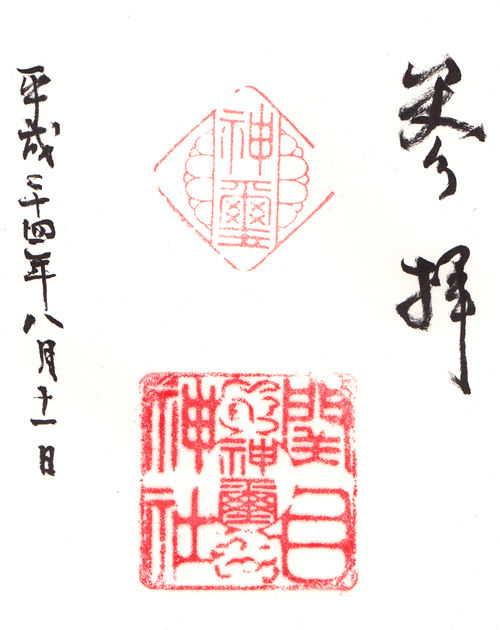 参拝
神璽
神璽
神社
平成二十四年八月十一日